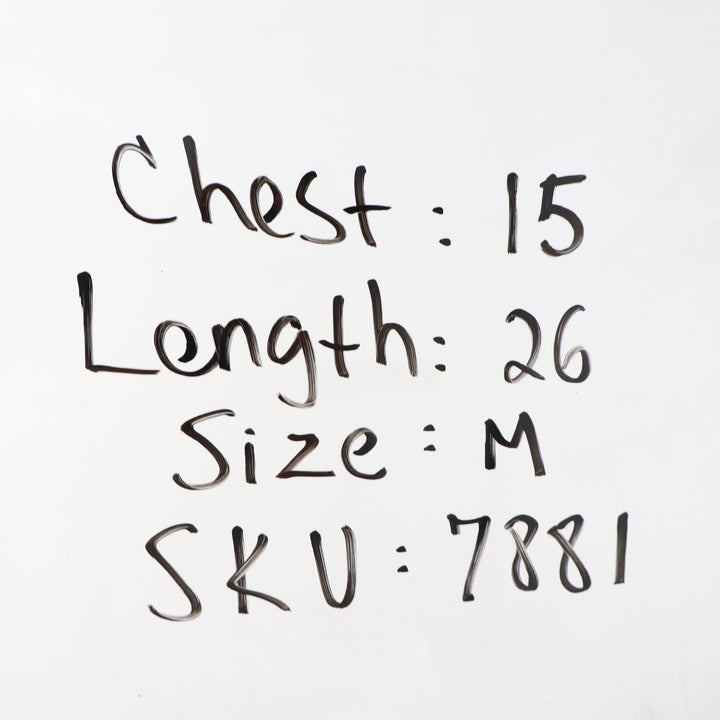 Chest: 15
Length: 26
Size: M
SKU: 7881